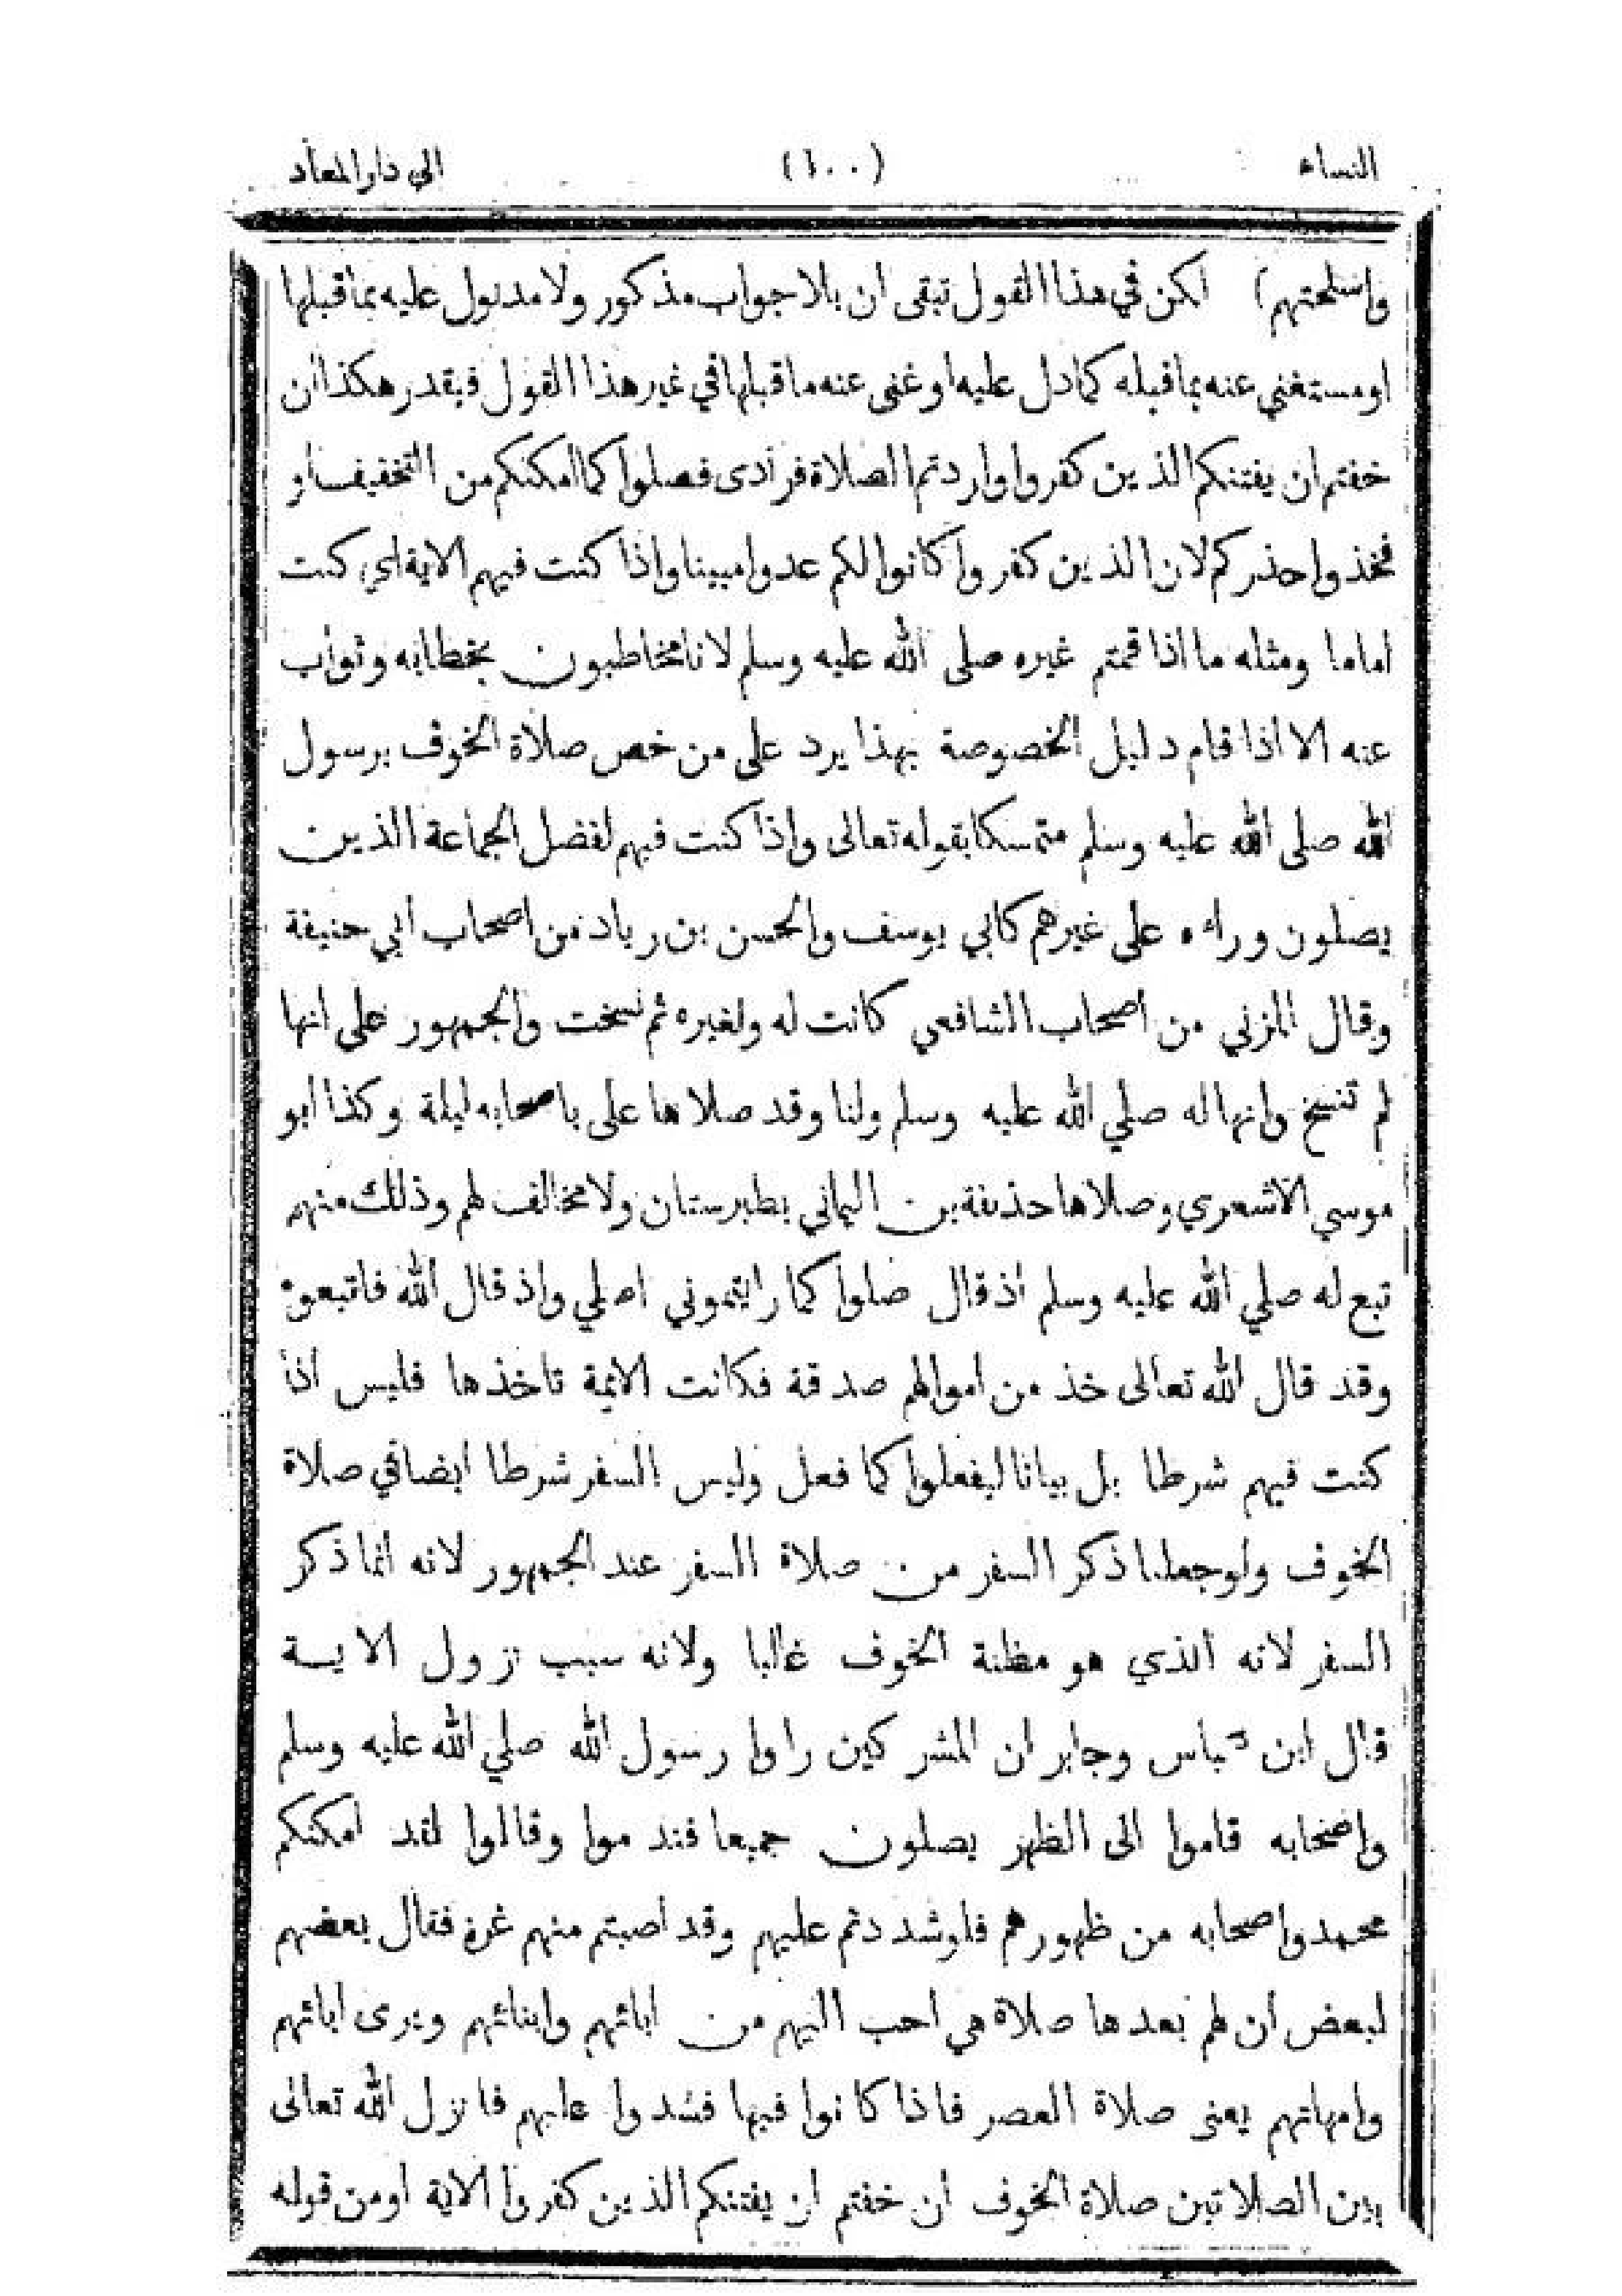 النساء (٦٠٠) الى دار المعاد
واسلحتهم) لكن في هذا القول تبقى ان بلا جواب مذكور ولا مدلول عليه بما قبلها
او مستغني عنه بما قبله كما دل عليه او غنى عنه ما قبلها في غير هذا القول فيقدر هكذا ان
خفتم ان يفتنكم الذين كفروا واردتم الصلاة فرادى فصلوا كما امكنكم من التخفيف او
فخذوا حذركم لان الذين كفروا كانوا لكم عدوا مبينا واذا كنت فيهم الاية اي كنت
اماما ومثله ما اذا قمتم غيره صلى الله عليه وسلم لانا مخاطبون بخطابه ونواب
عنه الا اذا قام دليل الخصوصة بهذا يرد على من خص صلاة الخوف برسول
الله صلى الله عليه وسلم متمسكا بقوله تعالى واذا كنت فيهم لفضل الجماعة الذين
يصلون وراءه على غيرهم كابي يوسف والحسن بن زياد من اصحاب ابي حنيفة
وقال المزني من اصحاب الشافعي كانت له ولغيره ثم نسخت والجمهور على انها
لم تنسخ وانها له صلي الله عليه وسلم ولنا وقد صلاها على باصحابه ليلة وكذا ابو
موسي الاشعري وصلاها حذيفة بن اليماني بطبرستان ولا مخالف لهم وذلك منهم
تبع له صلي الله عليه وسلم اذ قال صلوا كما رايتموني اصلي واذ قال الله فاتبعوه
وقد قال الله تعالى خذ من اموالهم صدقة فكانت الايمة تاخذها فليس اذا
كنت فيهم شرطا بل بيانا ليفعلوا كما فعل وليس السفر شرطا ايضا في صلاة
الخوف ولو جعلنا ذكر السفر من صلاة السفر عند الجمهور لانه انما ذكر
السفر لانه الذي هو مظنة الخوف غالبا ولانه سبب نزول الاية
قال ابن عباس وجابر ان المشركين راوا رسول الله صلي الله عليه وسلم
واصحابه قاموا الى الظهر يصلون جميعا فندموا وقالوا لقد امكنكم
محمد واصحابه من ظهورهم فلو شددتم عليهم وقد اصبتم منهم غرة فقال بعضهم
لبعض ان لهم بعدها صلاة هي احب اليهم من ابائهم وابنائهم ويرى ابائهم
وامهاتهم يعنى صلاة العصر فاذا كانوا فيها فشدوا عليهم فانزل الله تعالى
بين الصلاتين صلاة الخوف ان خفتم ان يفتنكم الذين كفروا الاية او من قوله